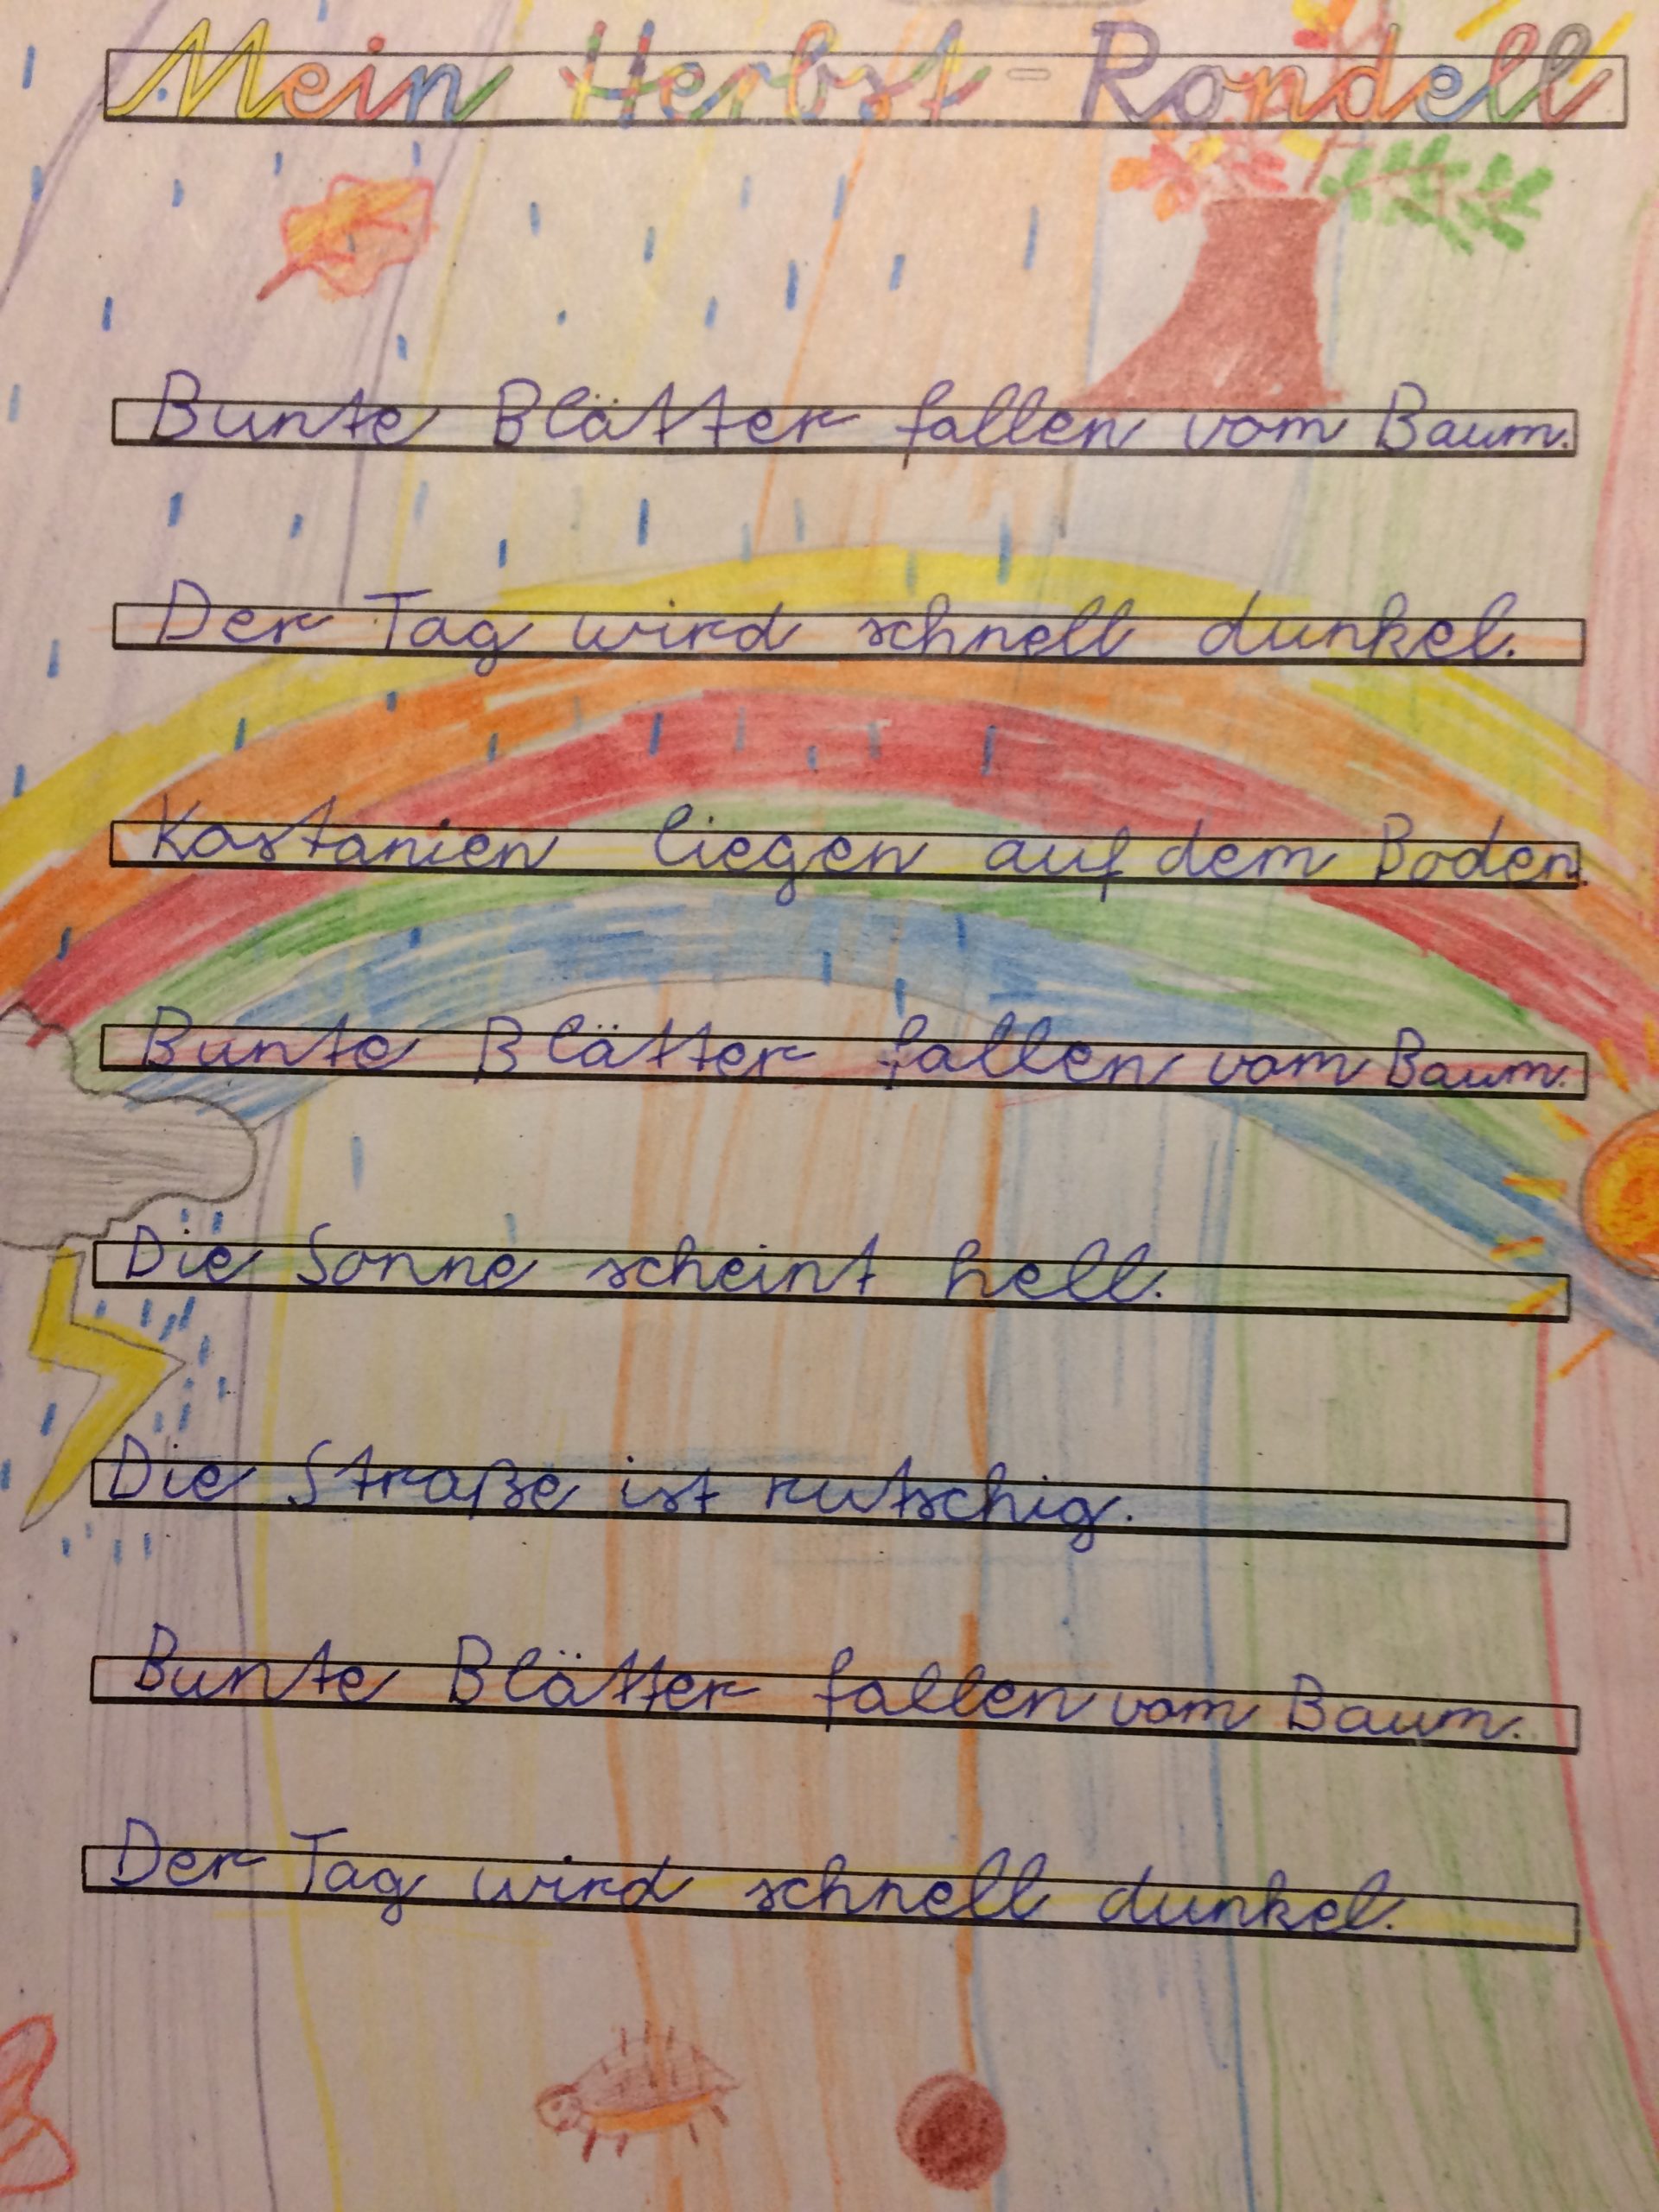 Mein Herbst-Rondell
Bunte Blätter fallen vom Baum.
Der Tag wird schnell dunkel.
Kastanien liegen auf dem Boden.
Bunte Blätter fallen vom Baum.
Die Sonne scheint hell.
Die Straße ist rutschig.
Bunte Blätter fallen vom Baum.
Der Tag wird schnell dunkel.